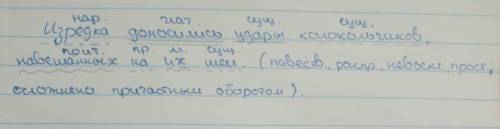 нар. глаг. сущ. сущ.
Изредка доносились удары колокольчиков,
прич. пр. м. сущ.
навешанных на их шеи. (повеств, распр, невоскл, прост,
осложнено причастным оборотом).